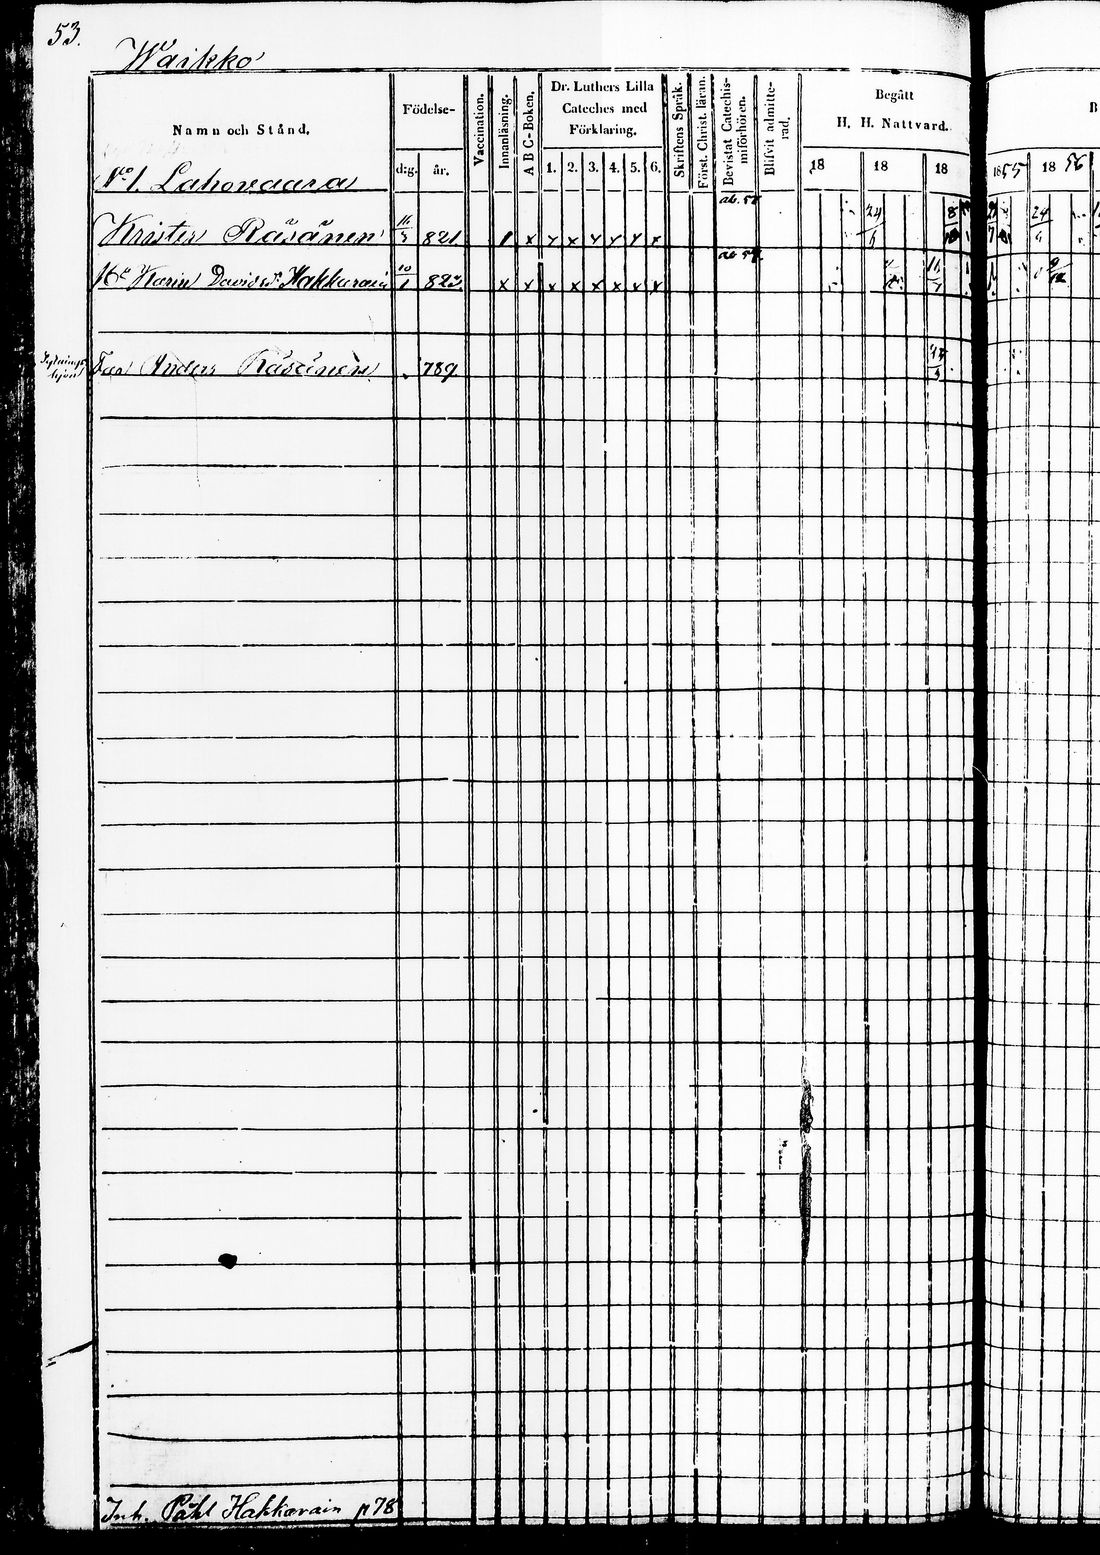 53.
Waikko
Namn och Stånd.
Födelse-
d:g. år.
Vaccination.
Innanläsning.
A B C-Boken.
Dr. Luthers Lilla
Cateches med
Förklaring.
1. 2. 3. 4. 5. 6.
Skriftens Språk.
Först. Christ. läran.
Bevistat Catechis-
miförhören.
Blifvit admitte-
rad.
Begått
H. H. Nattvard.
18 18 18 1855 1856
B
No 1. Lahovaara
Krister Räsänen 821 x x x x x x x
Hu Karin Davidsdr Hakkarain 10/1 823 x x x x x x x x
Far Anders Räsänen 789
Inh. Påhl Hakkarain p 78